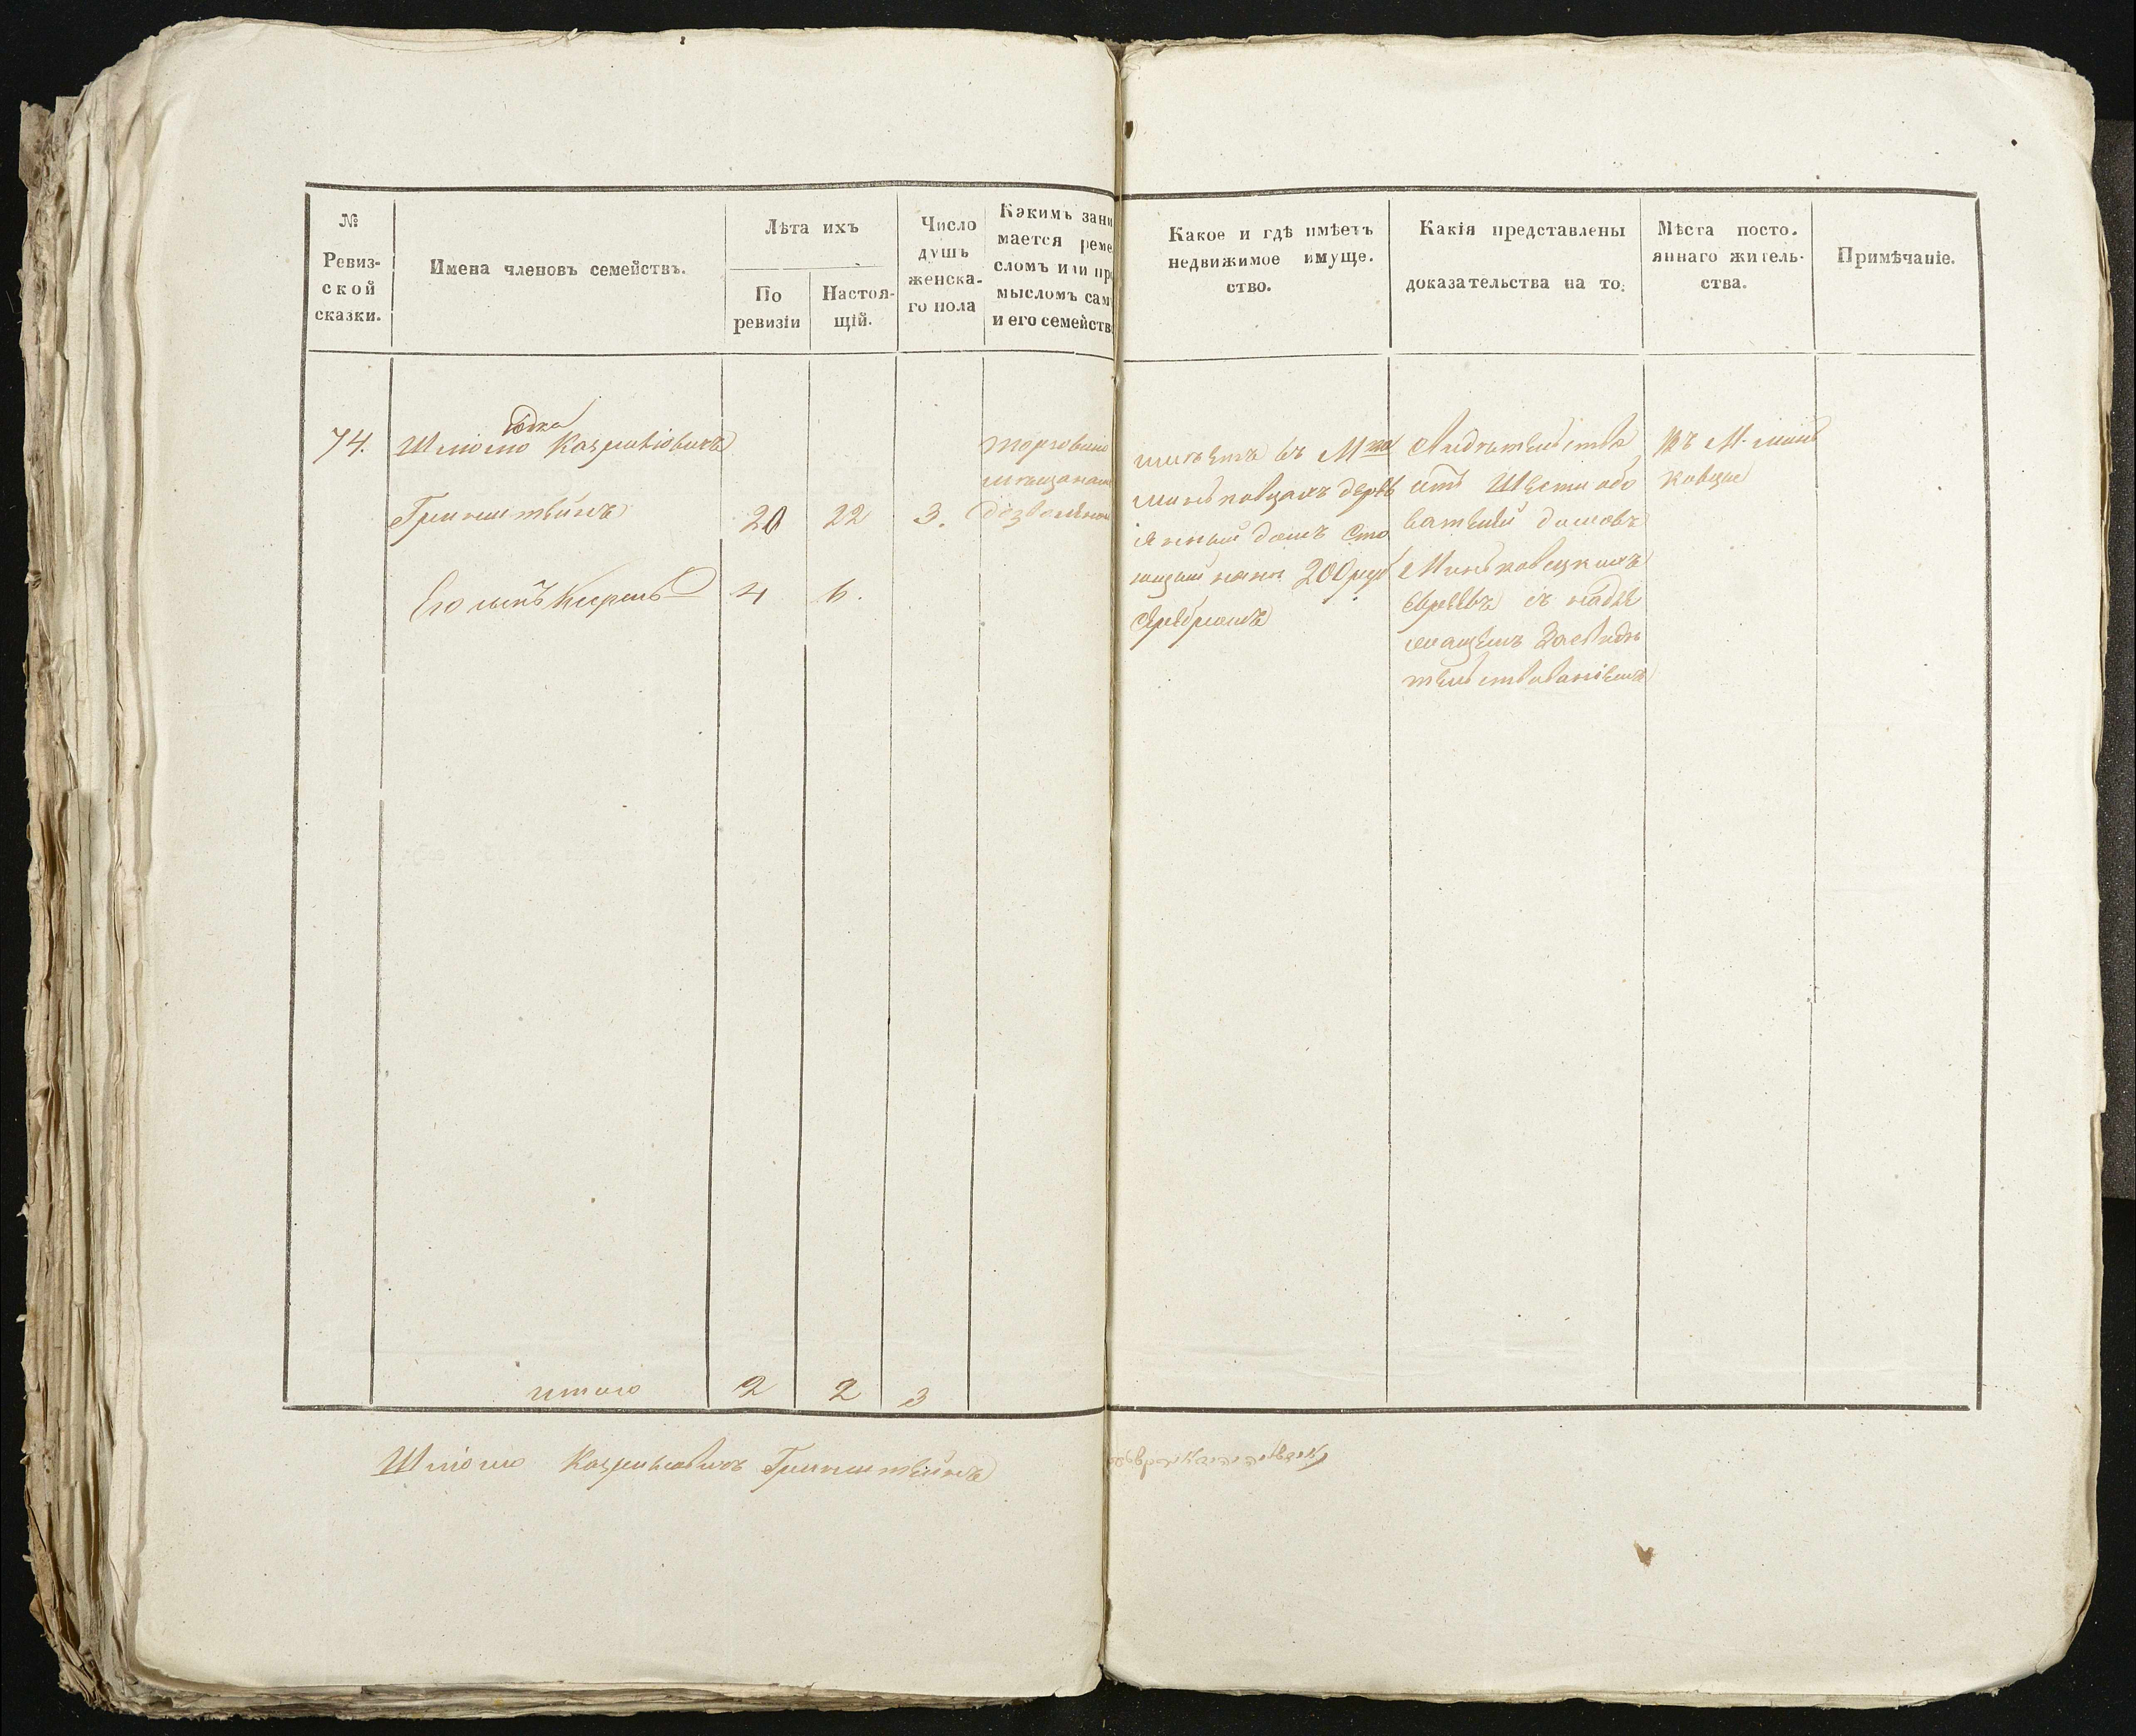 №
Ревиз-
ской
сказки.
Имена членовъ семействъ.
Лѣта ихъ
По
ревизіи
Настоя-
щій.
Число
душъ
женска-
го пола
Какимъ зани
мается реме
сломъ или пр
мысломъ сам
и его семейств
Какое и гдѣ имѣетъ
недвижимое имуще.
ство.
Какія представлены
доказательства на то.
Мѣста посто.
яннаго житель-
ства.
Примѣчаніе.
74.
Шліомо
Гринштейнъ
20 22 3.
Его сынъ
4 6.
мѣщанам
дозволенн
имѣетъ въ М
миньковцахъ дерев
янный домъ сто
ющій 200 руб
серебромъ
Свидѣтельство
отъ Шести обы
вателей домовъ
Миньковецкихъ
евреевъ съ надле
жащемъ Засвидѣ
тельствованіемъ
Въ М. минь
ковце
итого 2 2 3
Шліомо Гринштейнъ